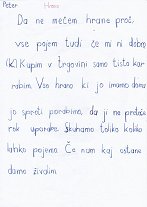 Peter Hrana
Da ne mečem hrane proč
vse pojem tudi če mi ni dobro
(K) Kupim v trgovini samo tisto kar
rabim. Vso hrano ki jo imamo doma
jo sproti porabimo, da ji ne preteče
rok uporabe. Skuhamo toliko kolikor
lahko pojemo. Če nam kaj ostane
damo živalim.